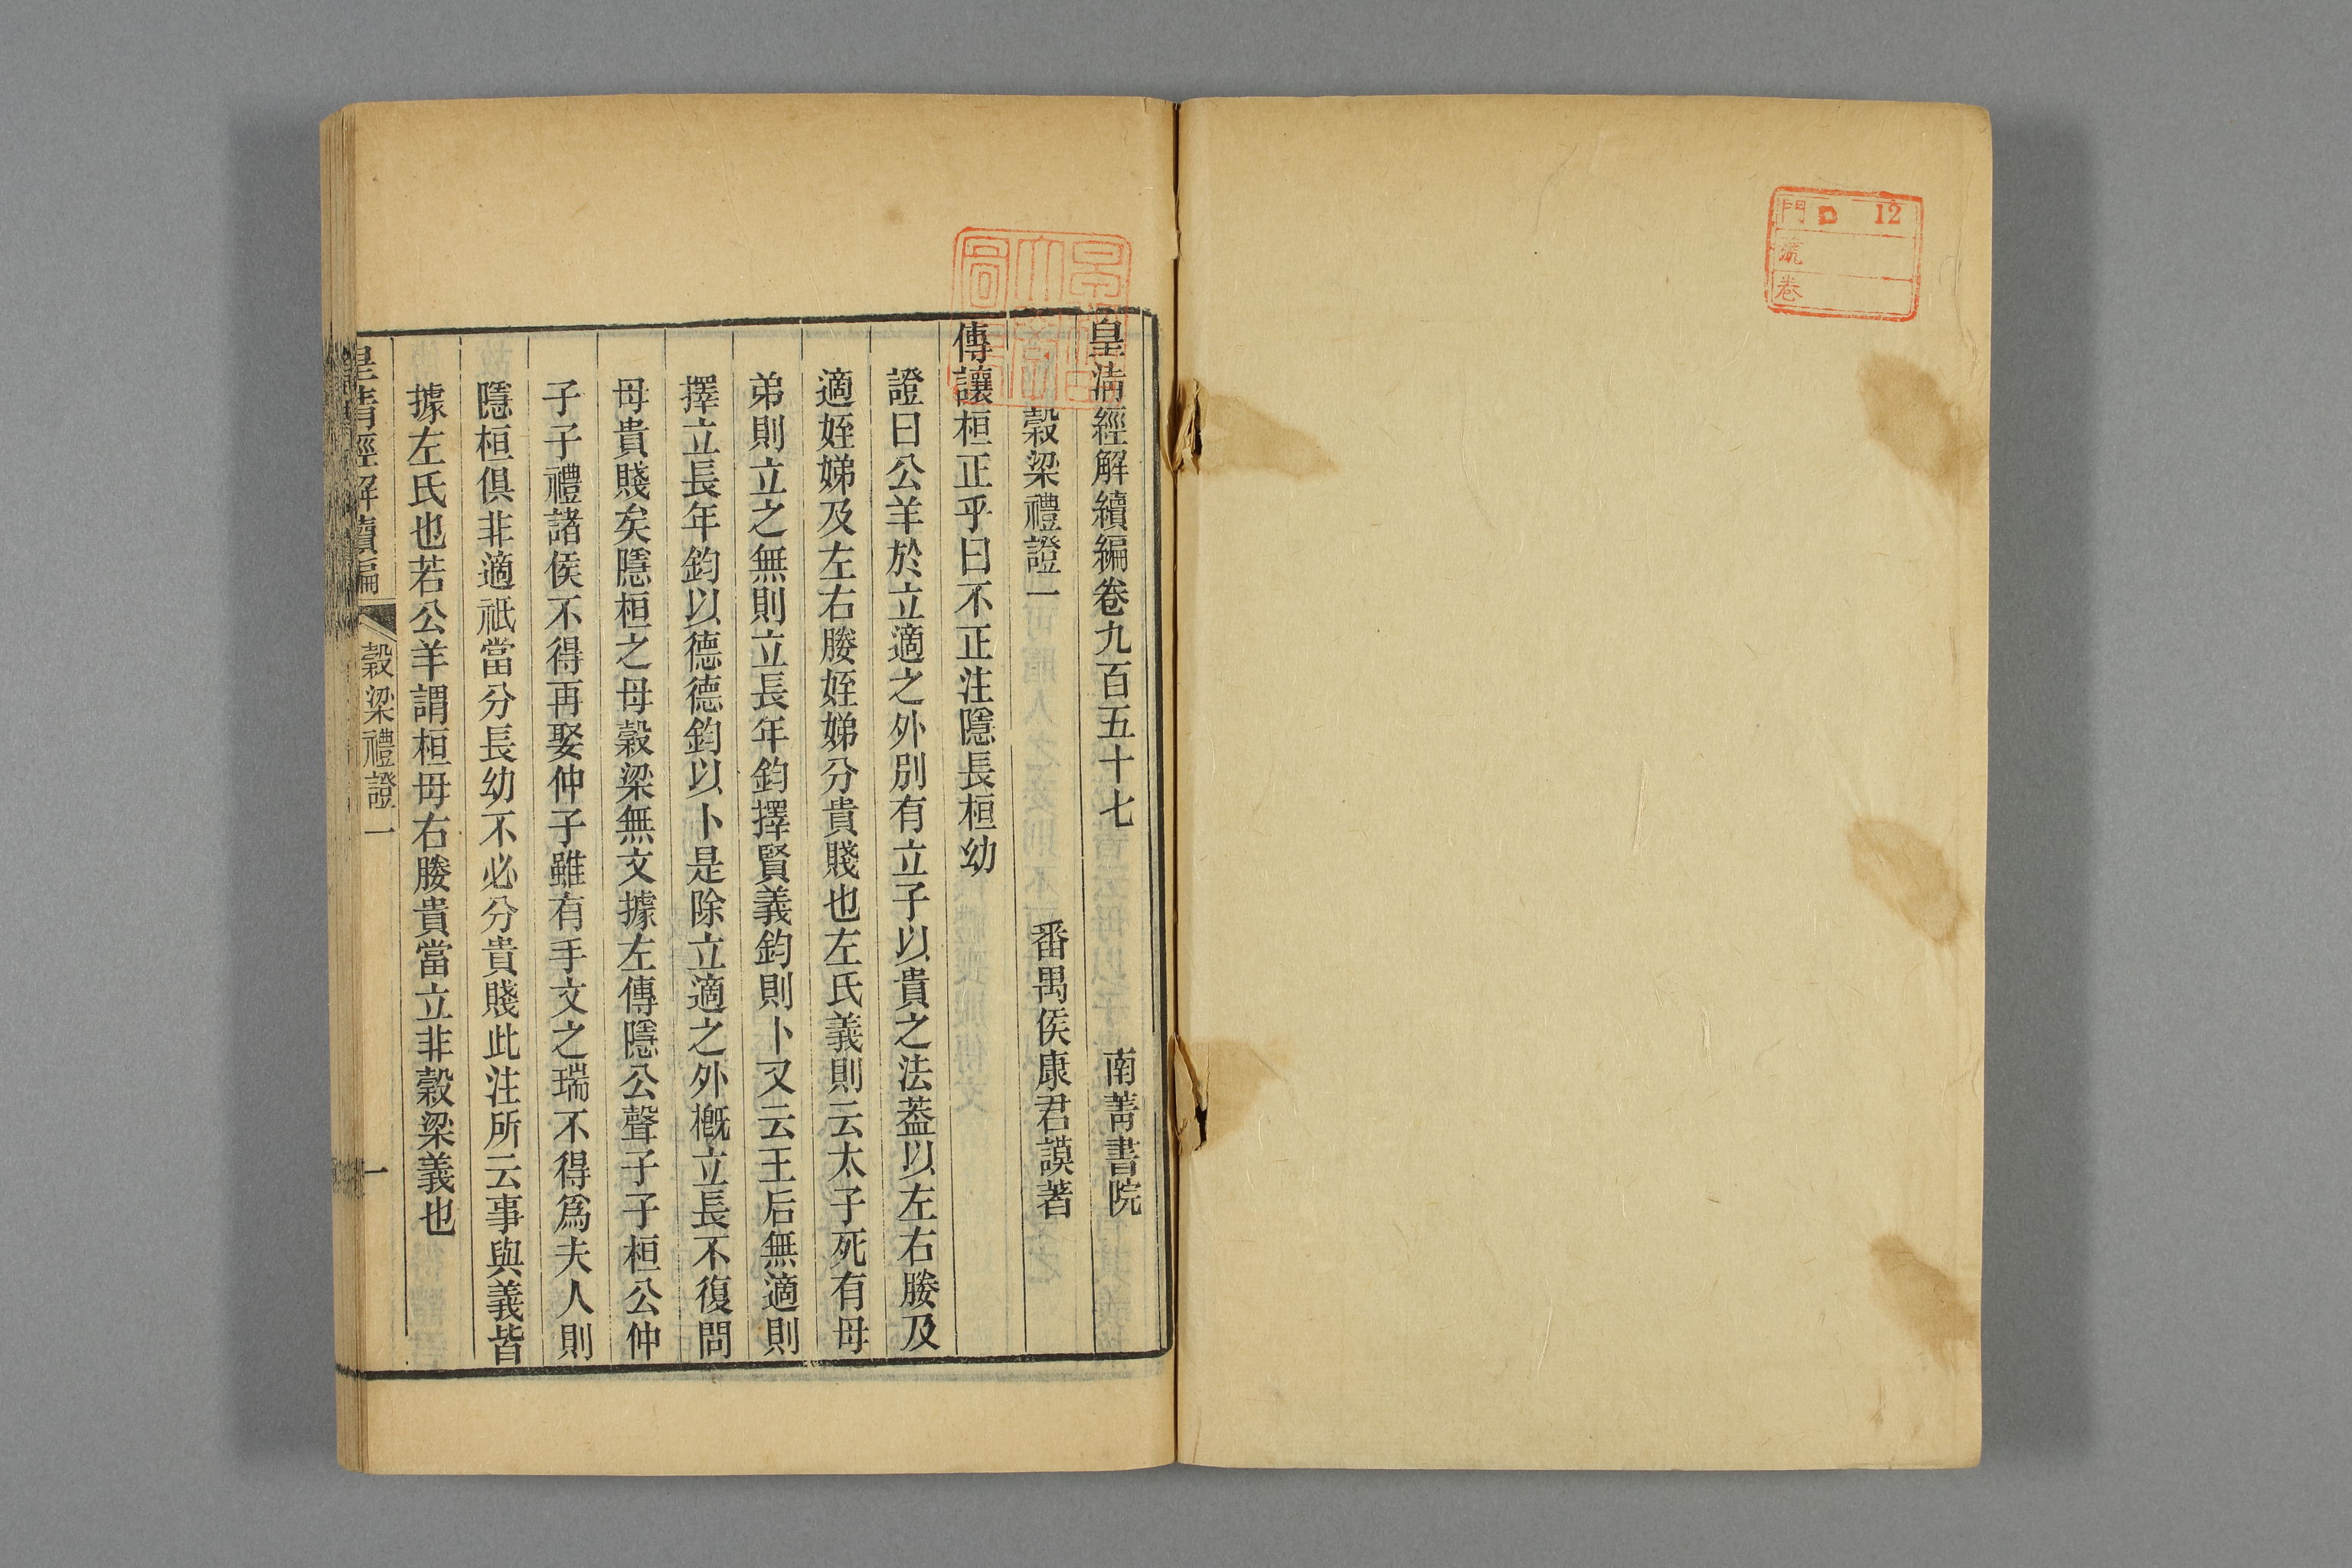 門 口 12
號
卷
皇清經解續編卷九百五十七 南菁書院
穀梁禮證一 番禺侯康君謨著
傳讓桓正乎曰不正注隱長桓幼
證曰公羊於立適之外別有立子以貴之法葢以左右媵及
適姪娣及左右媵姪娣分貴賤也左氏義則云太子死有母
弟則立之無則立長年鈞擇賢義鈞則卜又云王后無適則
擇立長年鈞以德德鈞以卜是除立適之外槪立長不復問
母貴賤矣隱桓之母穀梁無文據左傳隱公聲子子桓公仲
子子禮諸侯不得再娶仲子雖有手文之瑞不得爲夫人則
隱桓俱非適祇當分長幼不必分貴賤此注所云事與義皆
據左氏也若公羊謂桓母右媵貴當立非穀梁義也
皇清經解續編 穀梁禮證一 一